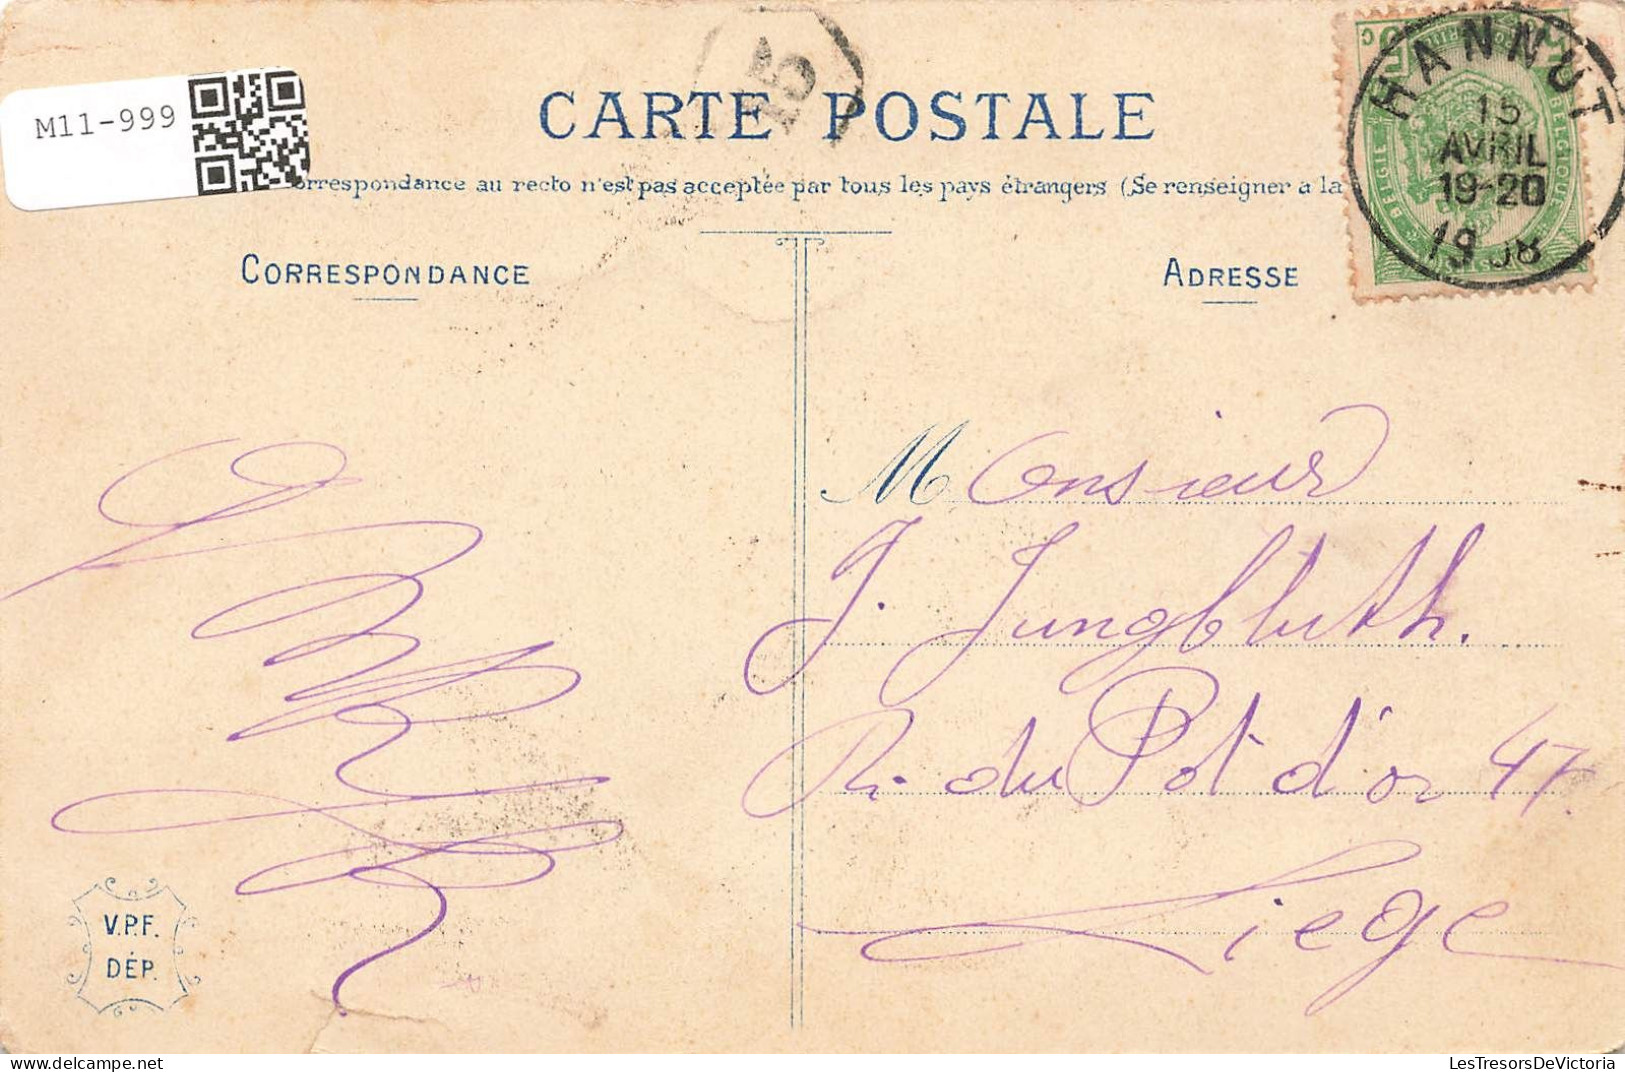 M11-999
CARTE POSTALE
15
HANNUT
15
AVRIL
19-20
BELGIE
BELGIQUE
orrespondance au recto n'est pas acceptée par tous les pays étrangers (Se renseigner a la
CORRESPONDANCE
ADRESSE
Monsieur
J. Jungbluth.
R. du Pot d'or 47.
Liege
V.P.F.
DÉP.
LesTresorsDeVictoria